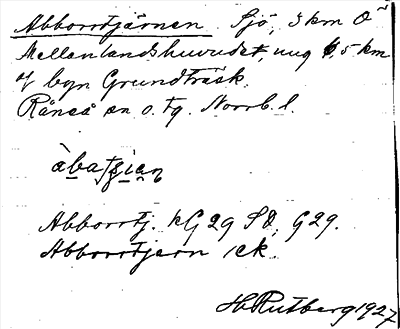 Abborrtjärnen Sjö, 3 km Ö
Mellanlandshuvudet, ung 6,5 km
af byn Grundträsk.
Råneå sn o. tg. Norrb. l.
Abborrtj. kG 29 SO, G29.
Abborrtjern ek.
HRutberg 1927